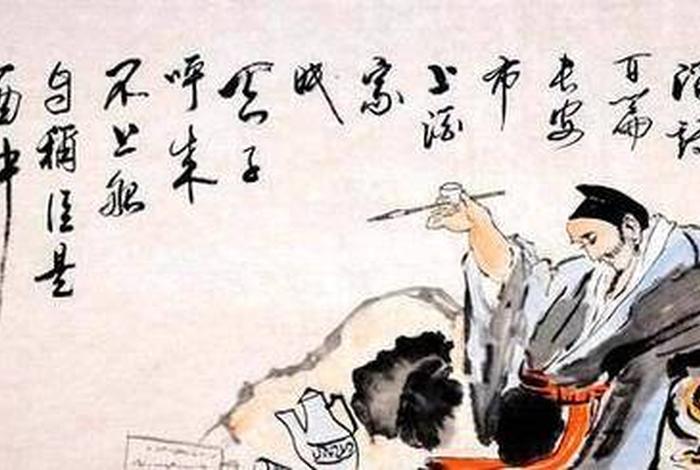 百篇
长安
市
上酒
家
眠
天子
呼来
不上船
自稱臣是
酒中